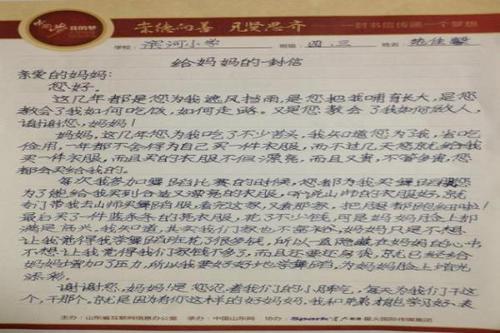 中国梦 我的梦
崇德向善 见贤思齐
一封书信传递一个梦想
学校：滨河小学 班级：四、三 姓名：
给妈妈的一封信
亲爱的妈妈：
您好。
这几年都是您为我遮风挡雨，是您把我哺育长大，是您
教会了我如何吃饭，如何走路。又是您教会了我如何做人，
谢谢您，妈妈！
妈妈，这几年您为我吃了不少苦头，我知道您为了我，省吃
俭用，一年都不舍得为自己买一件衣服，而不过几天您就给我
买一件衣服，而且买的衣服不但漂亮，而且又贵，不管多贵，您
都会买给我的。
每次我参加舞蹈比赛的时候，您都为我买舞蹈服，您
为了能给我买到合适又漂亮的衣服，听说山师的衣服好，就
专门带我去山师买舞蹈服，看完这家，又看那家，
最后买了一件蓝条条的亮衣服，花了不少钱，可是妈妈脸上却
满是高兴，我知道，其实我们家也不富裕，妈妈只是不想
让我觉得我学舞蹈班花了很多钱，所以一直隐藏在妈妈的心中
不想让我觉得我们家钱不多了，而且还要还房贷，就已经给
妈妈增加了压力，所以我要好好地学舞蹈，为妈妈脸上增光
添彩。
谢谢您，妈妈是您忍着我们的小脾气，每天为我们干这
个，干那个，就是因为有你这样的好妈妈，我和弟弟才能学习好、表
主办：山东省互联网信息办公室 承办：中国山东网 星火国际传媒集团